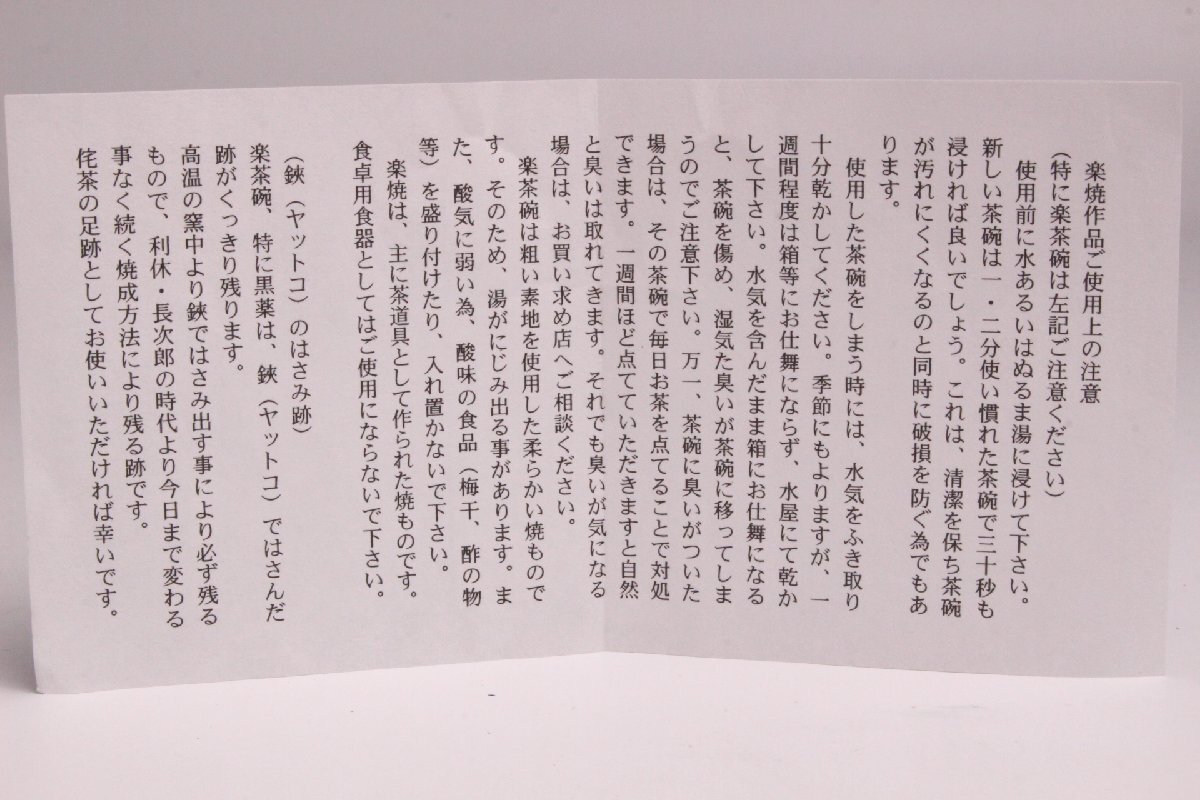 楽焼作品ご使用上の注意
（特に楽茶碗は左記ご注意ください）
使用前に水あるいはぬるま湯に浸けて下さい。
新しい茶碗は一・二分使い慣れた茶碗で三十秒も
浸ければ良いでしょう。これは、清潔を保ち茶碗
が汚れにくくなるのと同時に破損を防ぐ為でもあ
ります。
使用した茶碗をしまう時には、水気をふき取り
十分乾かしてください。季節にもよりますが、一
週間程度は箱等にお仕舞にならず、水屋にて乾か
して下さい。水気を含んだまま箱にお仕舞になる
と、茶碗を傷め、湿気た臭いが茶碗に移ってしま
うのでご注意下さい。万一、茶碗に臭いがついた
場合は、その茶碗で毎日お茶を点てることで対処
できます。一週間ほど点てていただきますと自然
と臭いは取れてきます。それでも臭いが気になる
場合は、お買い求め店へご相談ください。
楽茶碗は粗い素地を使用した柔らかい焼もので
す。そのため、湯がにじみ出る事があります。ま
た、酸気に弱い為、酸味の食品（梅干、酢の物
等）を盛り付けたり、入れ置かないで下さい。
楽焼は、主に茶道具として作られた焼ものです。
食卓用食器としてはご使用にならないで下さい。
（鋏（ヤットコ）のはさみ跡）
楽茶碗、特に黒薬は、鋏（ヤットコ）ではさんだ
跡がくっきり残ります。
高温の窯中より鋏ではさみ出す事により必ず残る
もので、利休・長次郎の時代より今日まで変わる
事なく続く焼成方法により残る跡です。
侘茶の足跡としてお使いいただければ幸いです。